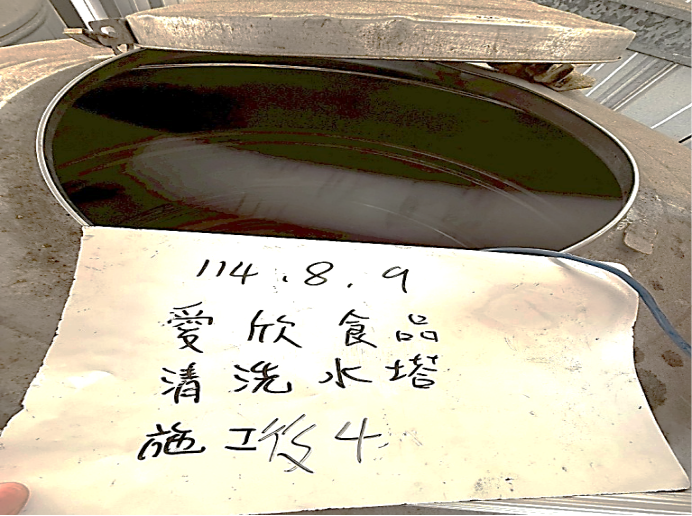 114.8.9
愛欣食品
清洗水塔
施工後4